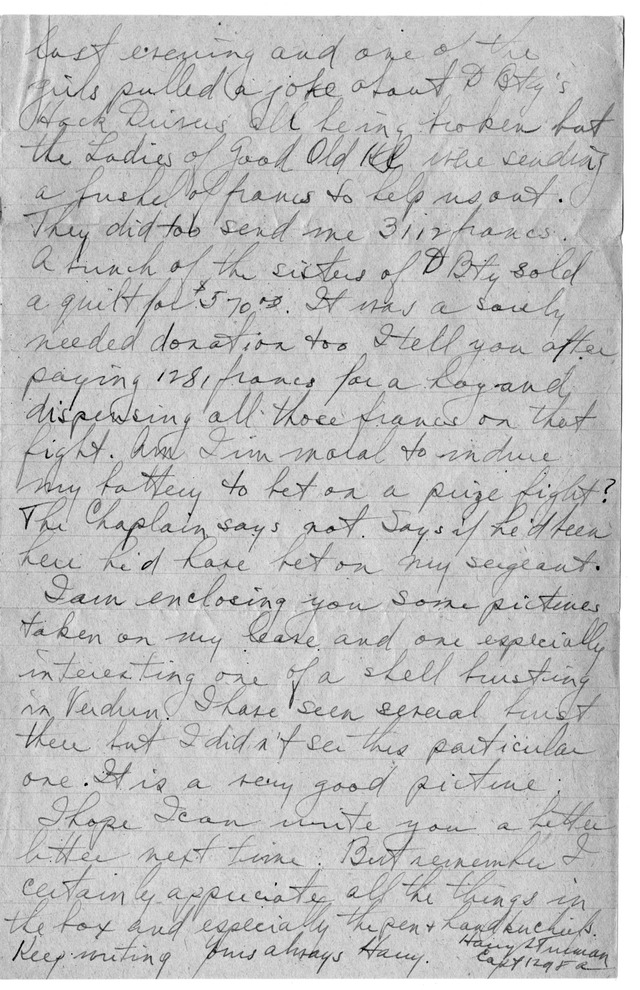 last evening and one of the
girls pulled a joke about D Bty's
Hack Drivers all being broken but
the Ladies of Good Old K.C. were sending
a bushel of francs to help us out.
They did too send me 3112 francs.
A bunch of the sisters of D Bty sold
a quilt for $570.00. It was a sorely
needed donation too I tell you after
paying 1281 francs for a hog and
dispensing all those francs on that
fight. Am I immoral to induce
my battery to bet on a prize fight?
The Chaplain says not. Says if he'd been
here he'd have bet on my sergeant.
I am enclosing you some pictures
taken on my leave and one especially
interesting one of a shell bursting
in Verdun. I have seen several burst
there but I didn't see this particular
one. It is a very good picture.
I hope I can write you a better
letter next time. But remember I
certainly appreciate all the things in
the box and especially the pen + handkerchiefs.
Keep writing Yours always Harry.
Harry S Truman
Capt 129 F A